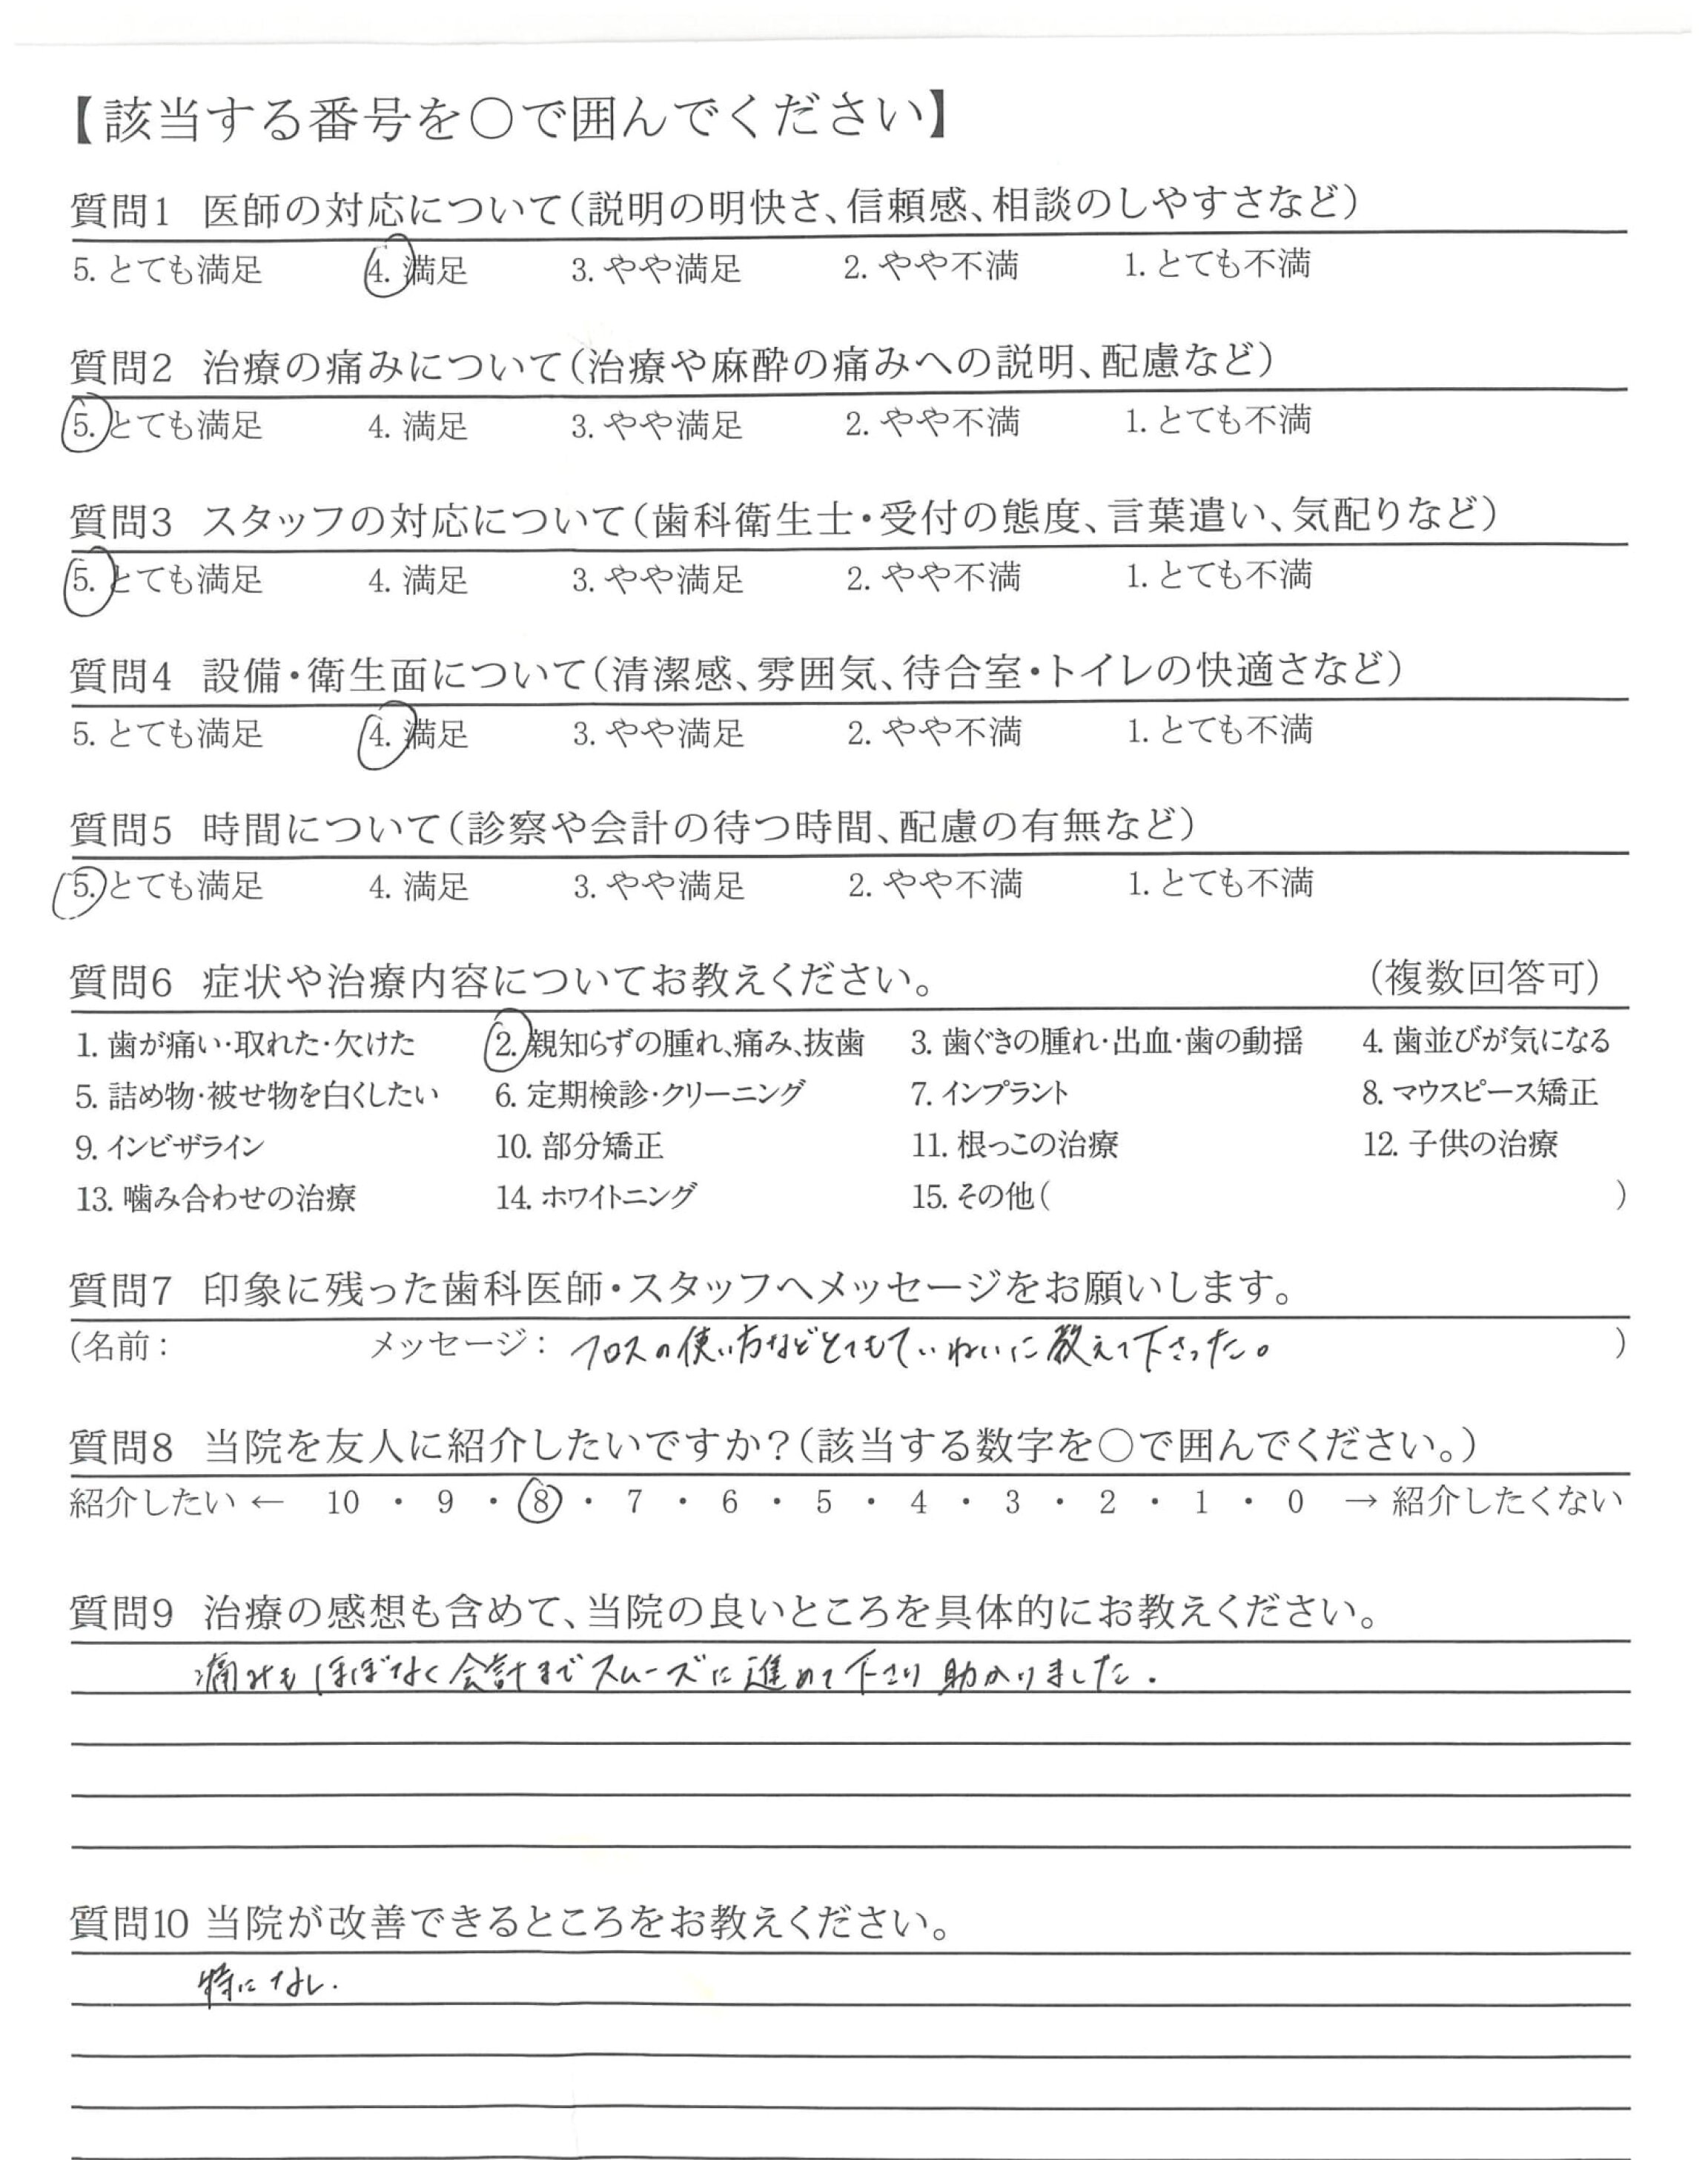 【該当する番号を○で囲んでください】
質問1 医師の対応について(説明の明快さ、信頼感、相談のしやすさなど)
5. とても満足 4. 満足 3. やや満足 2. やや不満 1. とても不満
質問2 治療の痛みについて(治療や麻酔の痛みへの説明、配慮など)
5. とても満足 4. 満足 3. やや満足 2. やや不満 1. とても不満
質問3 スタッフの対応について(歯科衛生士・受付の態度、言葉遣い、気配りなど)
5. とても満足 4. 満足 3. やや満足 2. やや不満 1. とても不満
質問4 設備・衛生面について(清潔感、雰囲気、待合室・トイレの快適さなど)
5. とても満足 4. 満足 3. やや満足 2. やや不満 1. とても不満
質問5 時間について(診察や会計の待つ時間、配慮の有無など)
5. とても満足 4. 満足 3. やや満足 2. やや不満 1. とても不満
質問6 症状や治療内容についてお教えください。 (複数回答可)
1. 歯が痛い・取れた・欠けた 2. 親知らずの腫れ、痛み、抜歯 3. 歯ぐきの腫れ・出血・歯の動揺 4. 歯並びが気になる
5. 詰め物・被せ物を白くしたい 6. 定期検診・クリーニング 7. インプラント 8. マウスピース矯正
9. インビザライン 10. 部分矯正 11. 根っこの治療 12. 子供の治療
13. 噛み合わせの治療 14. ホワイトニング 15. その他( )
質問7 印象に残った歯科医師・スタッフへメッセージをお願いします。
(名前: メッセージ: フロスの使い方などとてもていねいに教えて下さった。 )
質問8 当院を友人に紹介したいですか?(該当する数字を○で囲んでください。)
紹介したい ← 10 ・ 9 ・ 8 ・ 7 ・ 6 ・ 5 ・ 4 ・ 3 ・ 2 ・ 1 ・ 0 → 紹介したくない
質問9 治療の感想も含めて、当院の良いところを具体的にお教えください。
痛みもほぼなく会計までスムーズに進めて下さり助かりました.
質問10 当院が改善できるところをお教えください。
特になし.